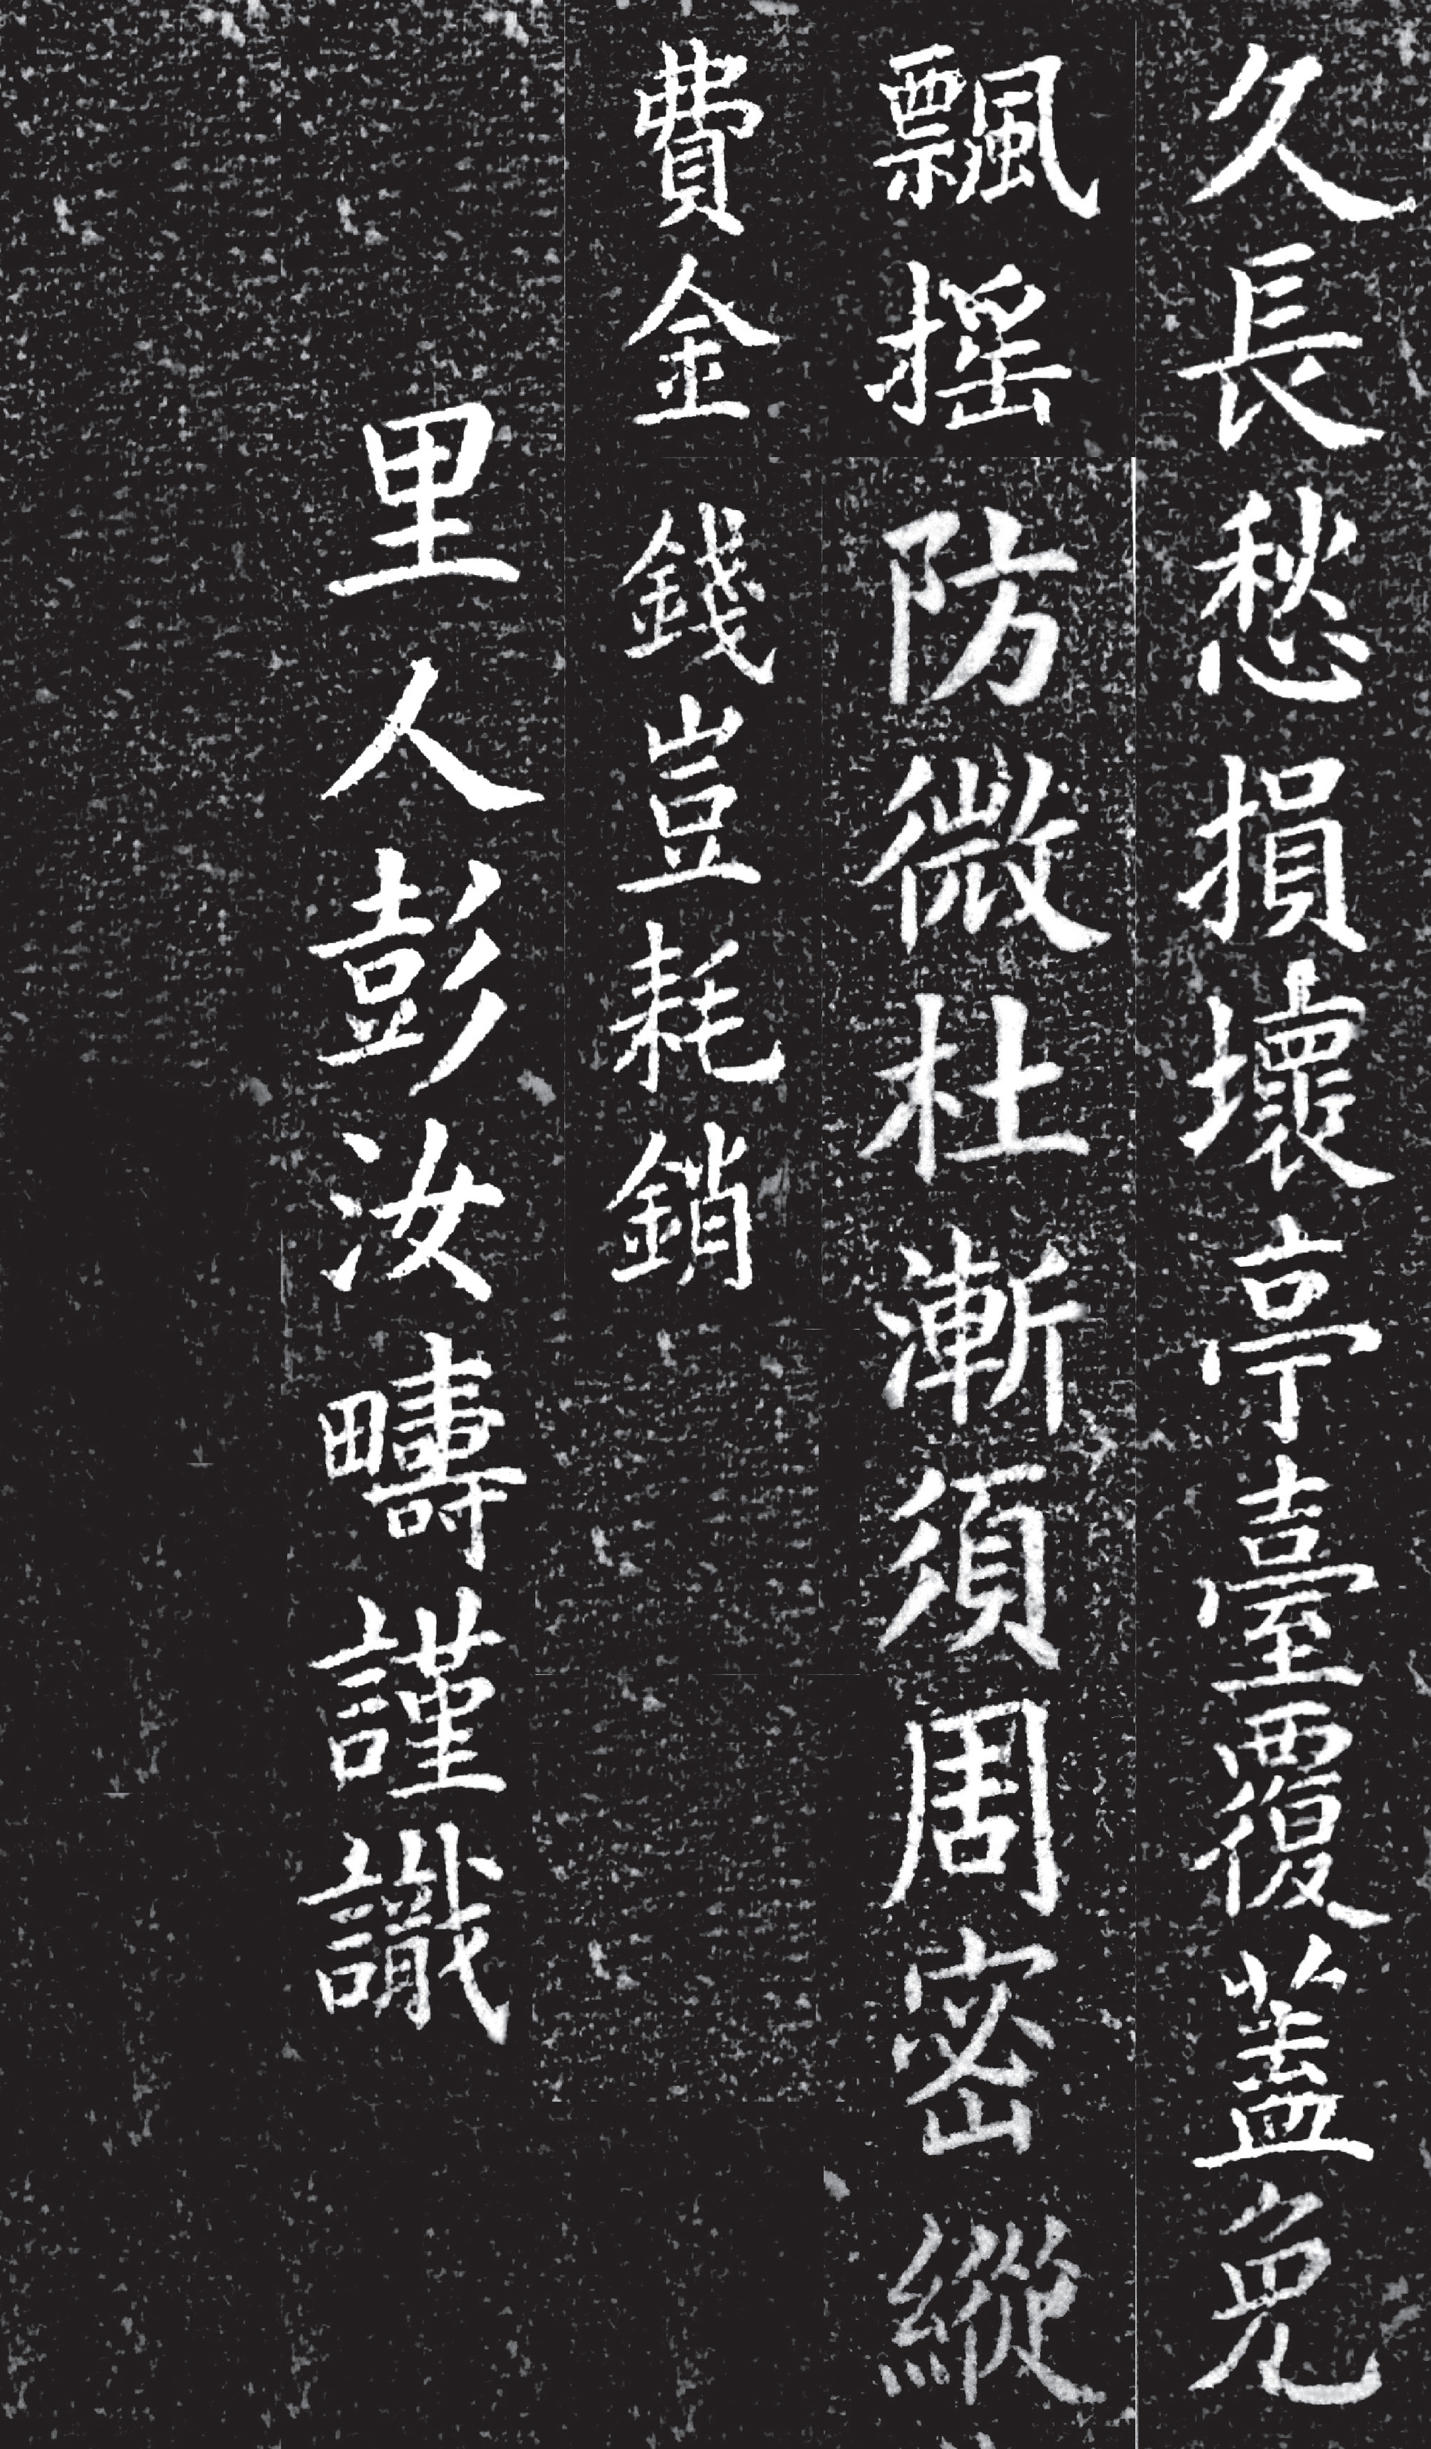 久長愁損壞亭臺覆蓋免
飄摇防微杜漸須周密縱
費金錢豈耗銷
里人彭汝疇謹識